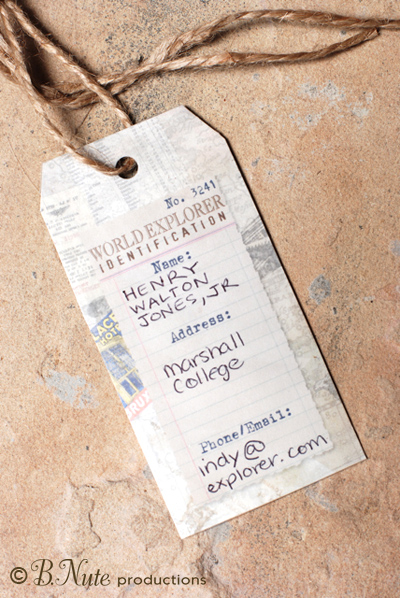 No. 3241
WORLD EXPLORER
IDENTIFICATION
Name:
HENRY
WALTON
JONES, JR
Address:
marshall
college
Phone/Email:
indy@
explorer.com
© B.Nute productions